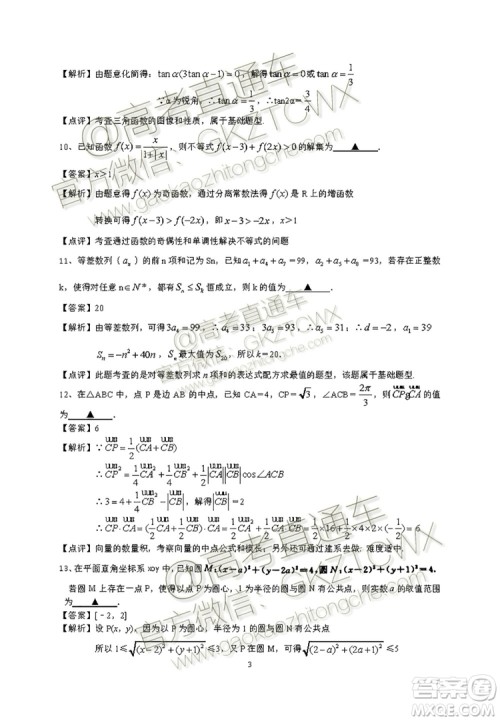 【解析】由题意化简得：tanα(3tanα−1)=0，解得tanα=0或tanα=1/3
∵α为锐角，∴tanα=1/3，∴tan2α=3/4
【点评】考查三角函数的图像和性质，属于基础题型.
10、已知函数 f(x)=x/(1+|x|)，则不等式 f(x−3)+f(2x)>0 的解集为 ▲ .
【答案】x>1
【解析】由题意可得 f(x) 为奇函数，通过分离常数法得 f(x) 是 R 上的增函数
转换可得 f(x−3)>f(−2x)，即 x−3>−2x，x>1
【点评】考查通过函数的奇偶性和单调性解决不等式的问题
11、等差数列{aₙ}的前 n 项和记为 Sn，已知 a₁+a₄+a₇=99，a₂+a₅+a₈=93，若存在正整数
k，使得对任意 n∈N*，都有 Sₙ≤Sₖ 恒成立，则 k 的值为 ▲ .
【答案】20
【解析】由等差数列，可得 3a₄=99，∴a₄=33；3a₅=93，∴a₅=31；∴d=−2，a₁=39
Sₙ=−n²+40n，Sₙ 最大值为 S₂₀，所以 k=20.
【点评】此题考查的是对等差数列求 n 项和的表达式配方求最值的题型，该题属于基础题型.
12、在△ABC 中，点 P 是边 AB 的中点，已知 CA=4，CP=√3，∠ACB=2π/3，则 CP·CA 的值
为 ▲ .
【答案】6
【解析】∵CP=1/2(CA+CB)
∴CP²=1/4CA²+1/4CB²+1/2|CA||CB|cos∠ACB
∴3=4+1/4|CB|²−|CB|，解得|CB|=2
∴CP·CA=(1/2CA+1/2CB)·CA=1/2×16+1/2×4×2×(−1/2)=6
【点评】向量的数量积，考察向量的中点公式与模长，通过建系去做也可以做，难度适中.
13、在平面直角坐标系 xoy 中，已知圆 M：(x−a)²+(y−2a)²=4，圆 N：(x−2)²+(y+1)²=4，
若圆 M 上存在一点 P，使得以点 P 为圆心，1 为半径的圆与圆 N 有公共点，则实数 a 的取值范围
为
【答案】[-2，2]
【解析】设 P(x，y)，因为以 P 为圆心，半径为 1 的圆与圆 N 有公共点
所以 1≤√((x−2)²+(y+1)²)≤3，又 P 在圆 M 上，可得√((2−a)²+(2a+1)²)≤5
3
@高考直通车
官方微信：GKZTCWX
www.gaokaozhitongche.com